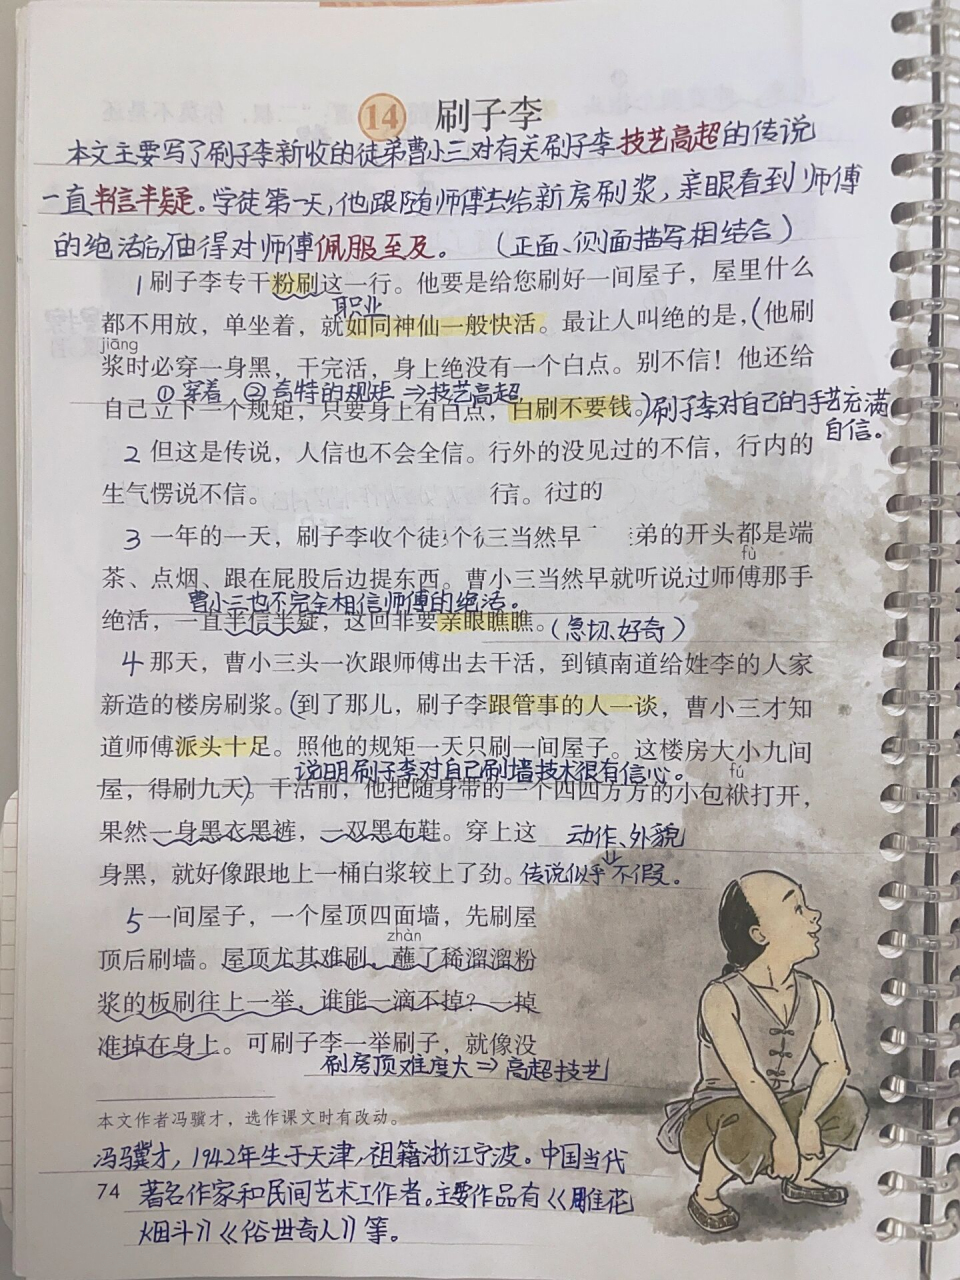 14 刷子李
本文主要写了刷子李新收的徒弟曹小三对有关刷子李技艺高超的传说
一直半信半疑。学徒第一天,他跟随师傅去给新房刷浆,亲眼看到师傅
的绝活后,由得对师傅佩服至及。(正面、侧面描写相结合)
1 刷子李专干粉刷这一行。他要是给您刷好一间屋子,屋里什么
职业
都不用放,单坐着,就如同神仙一般快活。最让人叫绝的是,(他刷
jiāng
浆时必穿一身黑,干完活,身上绝没有一个白点。别不信!他还给
①穿着 ②奇特的规矩⇒技艺高超
自己立下一个规矩,只要身上有白点,白刷不要钱。)刷子李对自己的手艺充满
自信。
2 但这是传说,人信也不会全信。行外的没见过的不信,行内的
生气愣说不信。 行言。行过的
3 一年的一天,刷子李收个徒 个 三当然早 弟的开头都是端
fù
茶、点烟、跟在屁股后边提东西。曹小三当然早就听说过师傅那手
曹小三也不完全相信师傅的绝活。
绝活,一直半信半疑,这回非要亲眼瞧瞧。(急切、好奇)
4 那天,曹小三头一次跟师傅出去干活,到镇南道给姓李的人家
新造的楼房刷浆。(到了那儿,刷子李跟管事的人一谈,曹小三才知
道师傅派头十足。照他的规矩一天只刷一间屋子。这楼房大小九间
说明刷子李对自己刷墙技术很有信心。 fú
屋,得刷九天)。干活前,他把随身带的一个四四方方的小包袱打开,
果然一身黑衣黑裤,一双黑布鞋。穿上这 动作、外貌
身黑,就好像跟地上一桶白浆较上了劲。传说似乎不假。
5 一间屋子,一个屋顶四面墙,先刷屋
zhàn
顶后刷墙。屋顶尤其难刷,蘸了稀溜溜粉
浆的板刷往上一举,谁能一滴不掉?一掉
准掉在身上。可刷子李一举刷子,就像没
刷房顶难度大⇒高超技艺
本文作者冯骥才,选作课文时有改动。
冯骥才,1942年生于天津,祖籍浙江宁波。中国当代
74 著名作家和民间艺术工作者。主要作品有《雕花
烟斗》《俗世奇人》等。